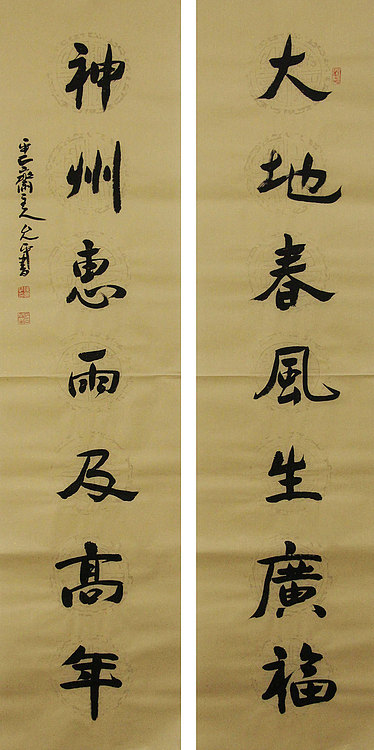 大地春風生廣福
神州惠雨及高年
齋主人